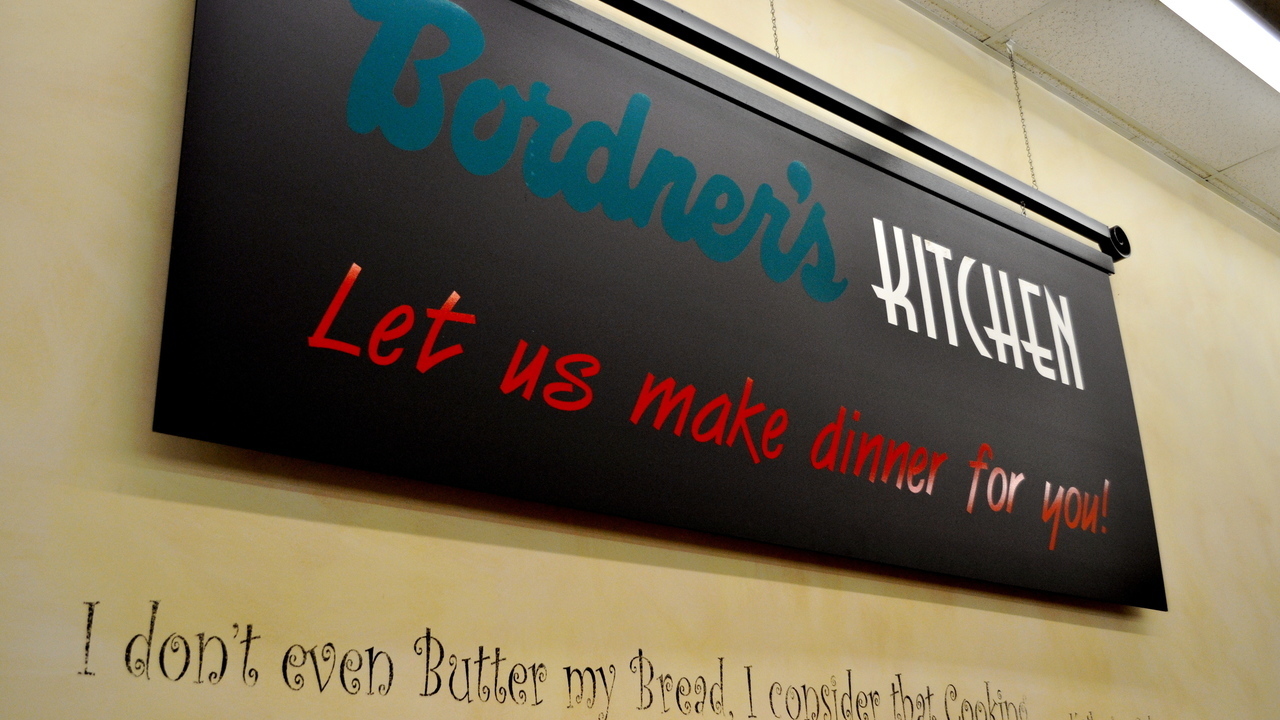 Bordner's KITCHEN
Let us make dinner for you!
I don't even Butter my Bread, I consider that Cooking